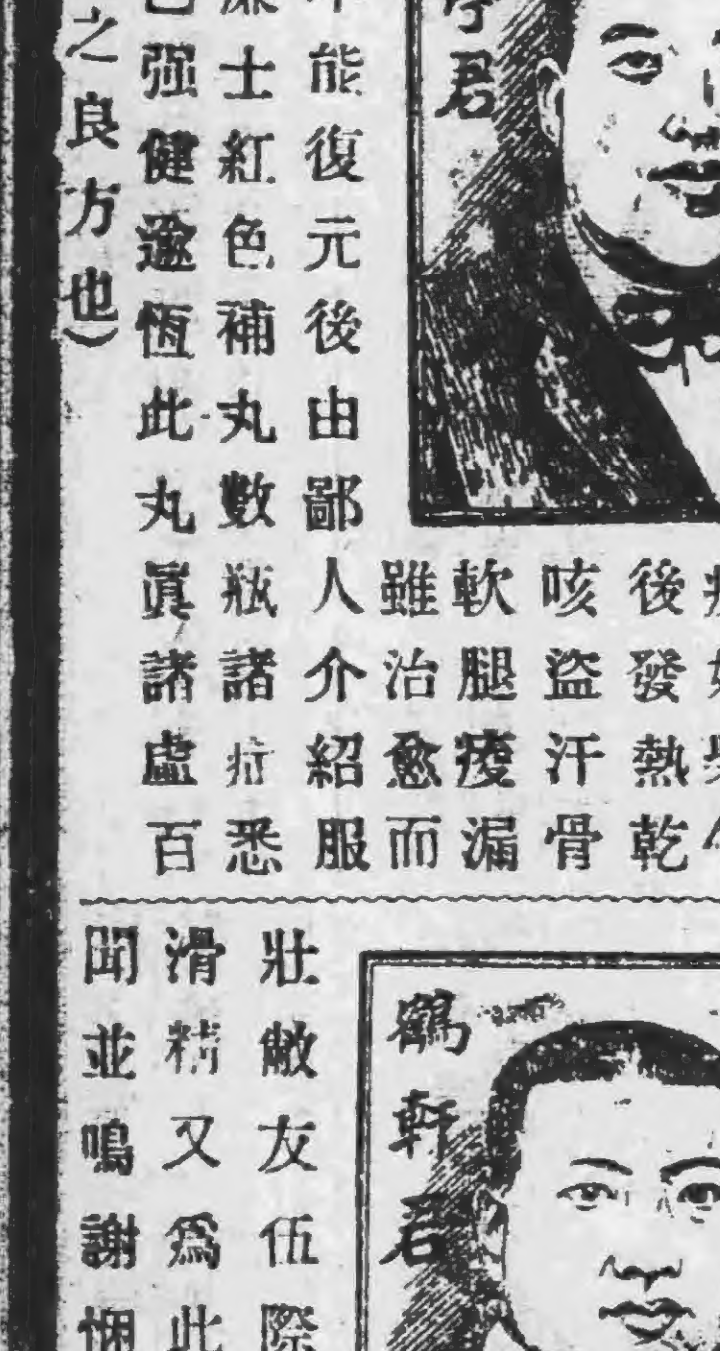 後發熱乾
咳盜汗骨
軟腿痠漏
雖治愈而
能復元後由鄙人介紹服
士紅色補丸數瓶諸症悉
强健逾恆此丸眞諸虛百
之良方也)
君
鶴軒君
壯敝友伍際
滑精又爲此
聞並鳴謝悃